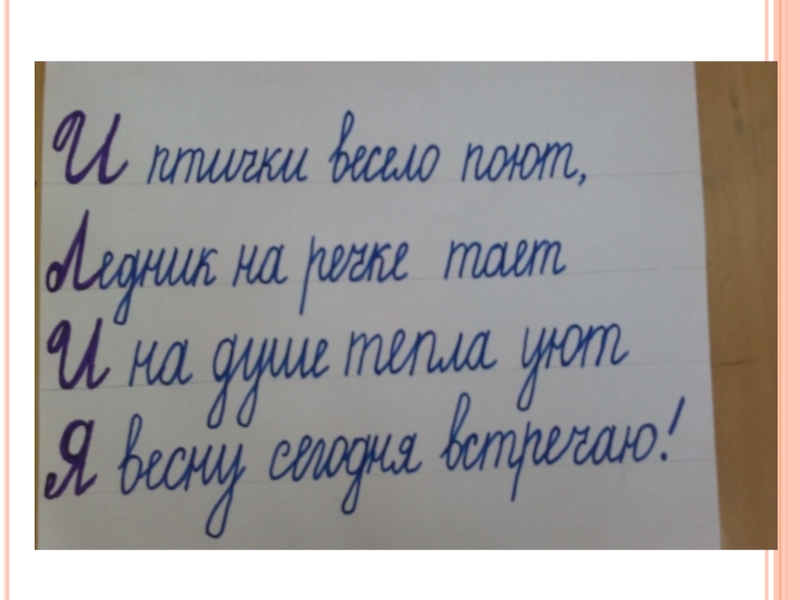 И птички весело поют,
Ледник на речке тает
И на душе тепла уют
Я весну сегодня встречаю!